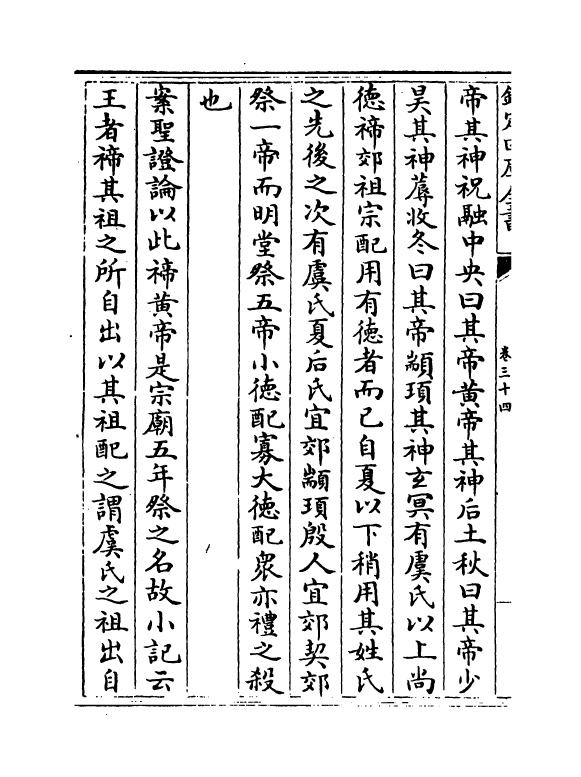 欽定四庫全書
卷三十四
帝其神祝融中央曰其帝黄帝其神后土秋曰其帝少
昊其神蓐收冬曰其帝顓頊其神玄冥有虞氏以上尚
徳禘郊祖宗配用有徳者而已自夏以下稍用其姓氏
之先後之次有虞氏夏后氏宜郊顓頊殷人宜郊契郊
祭一帝而明堂祭五帝小徳配寡大徳配衆亦禮之殺
也
案聖證論以此禘黄帝是宗廟五年祭之名故小記云
王者禘其祖之所自出以其祖配之謂虞氏之祖出自